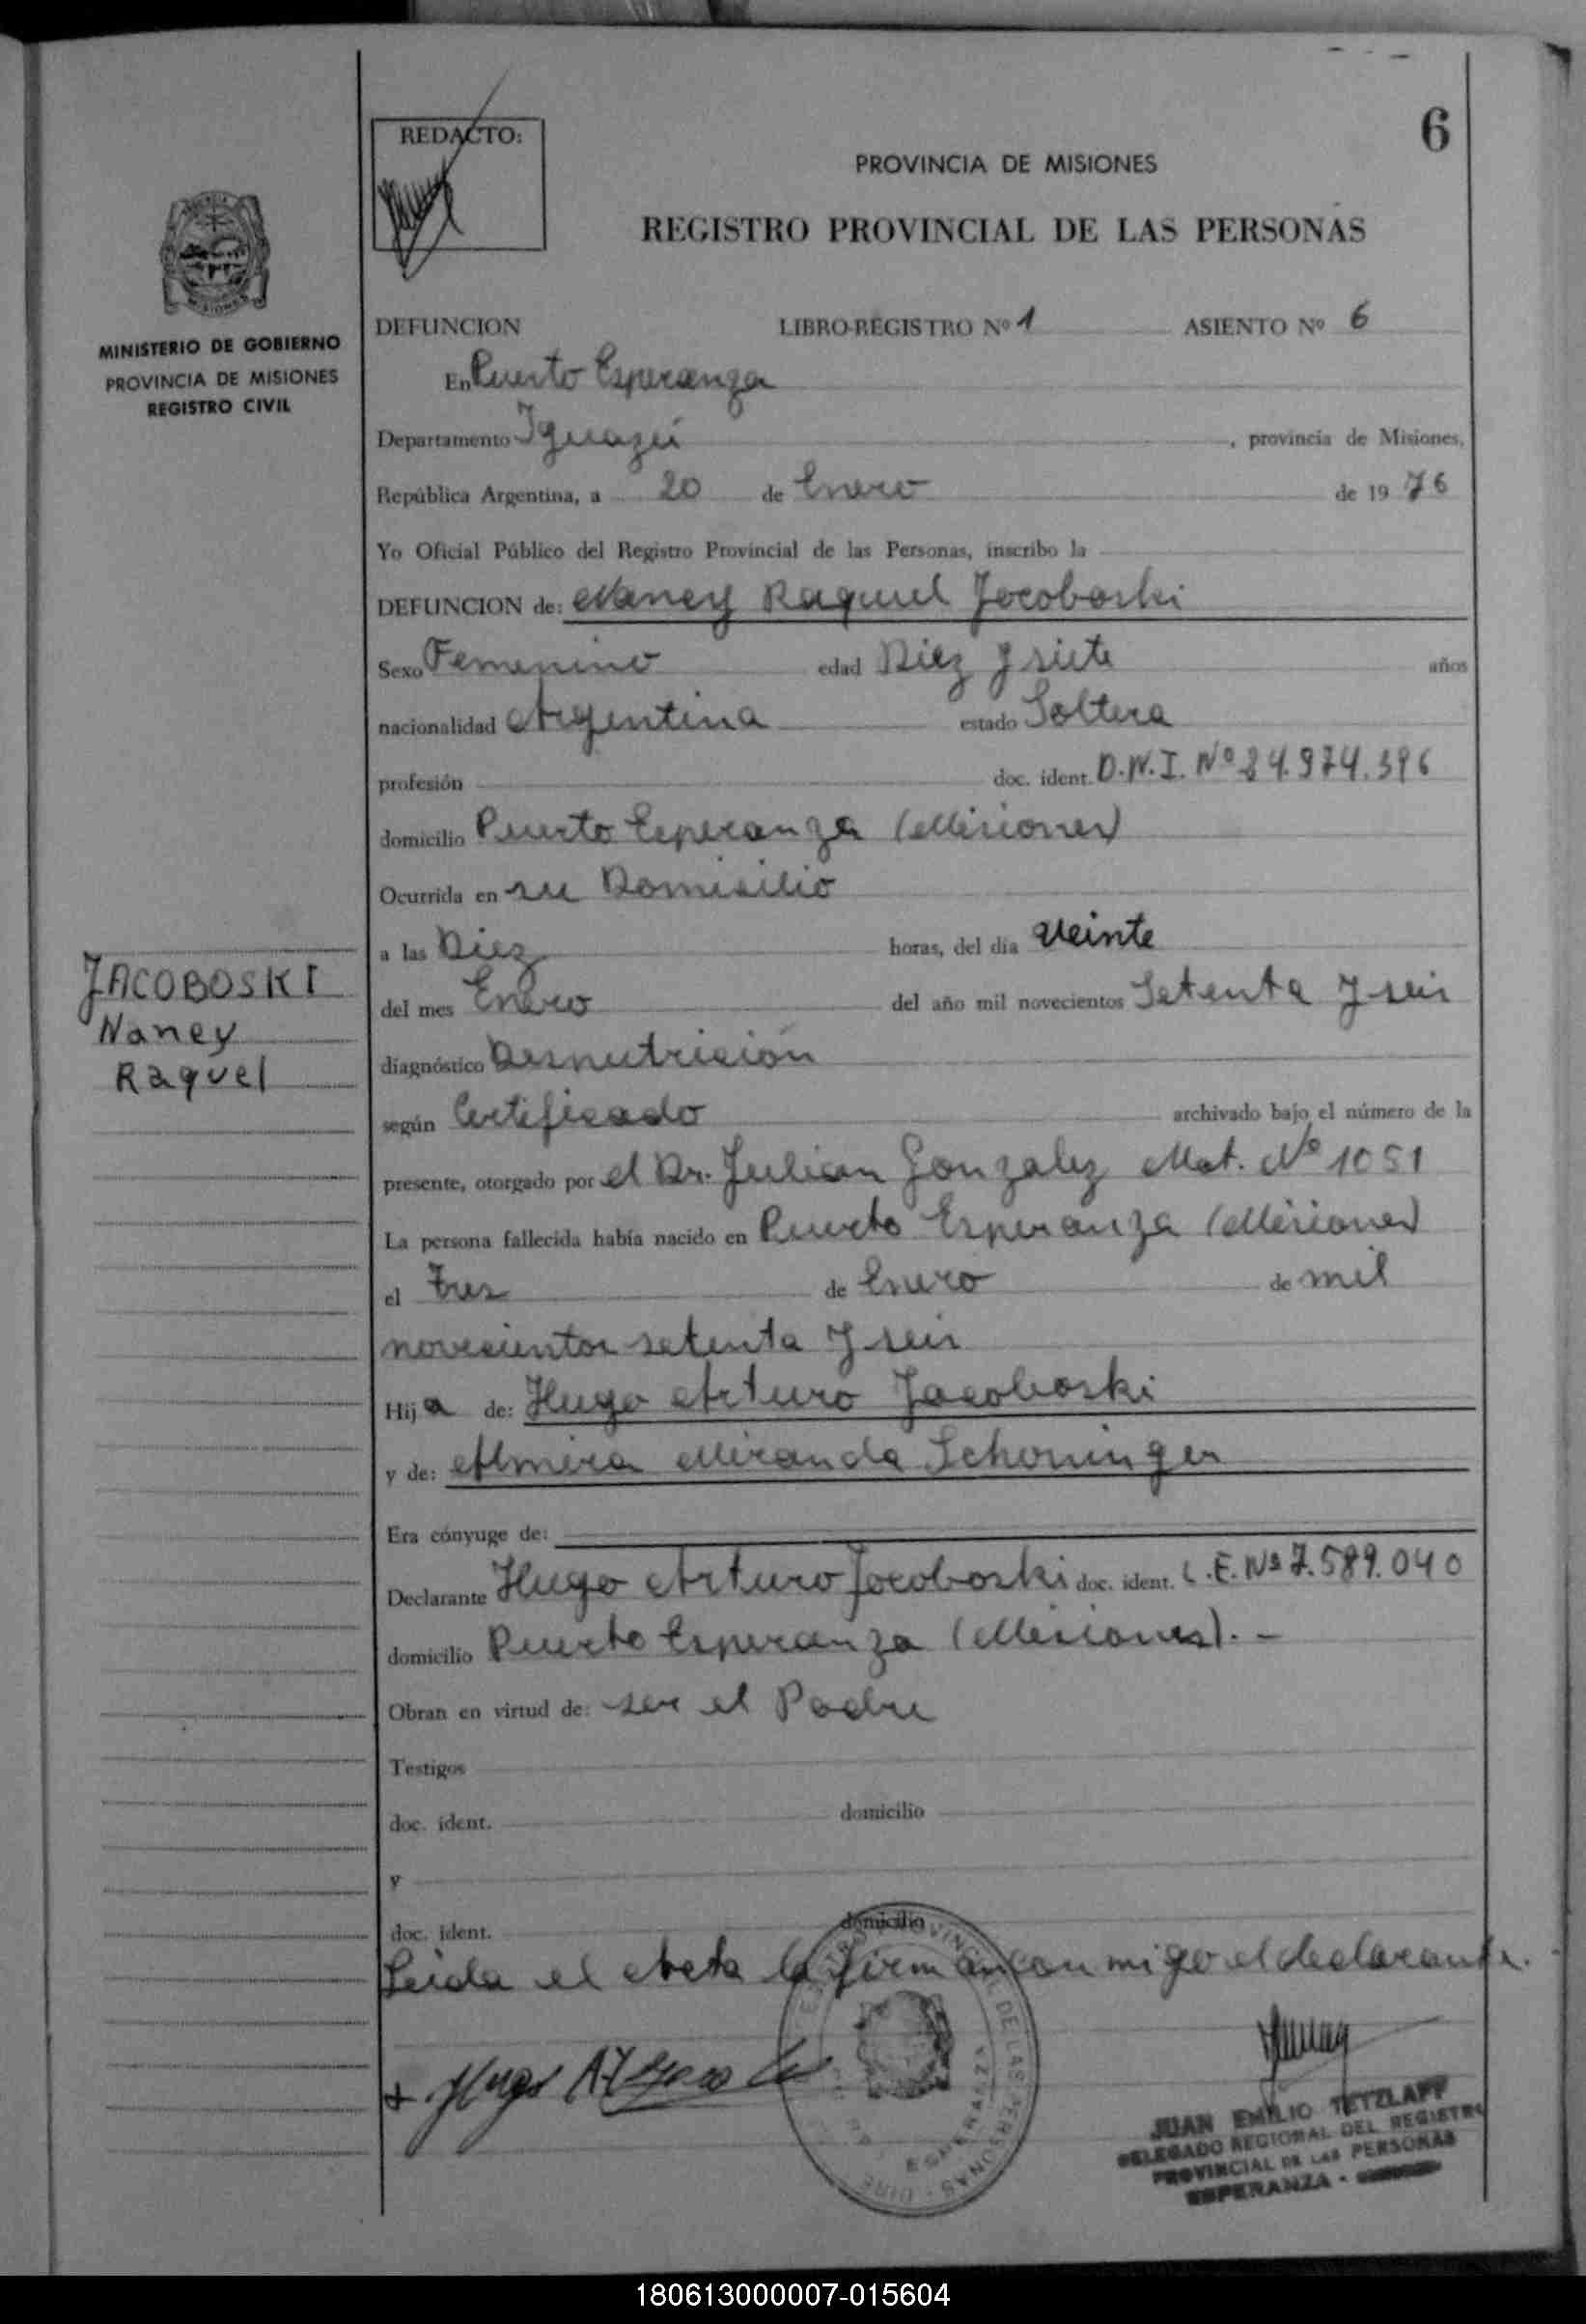 REDACTO:
6
PROVINCIA DE MISIONES
REGISTRO PROVINCIAL DE LAS PERSONAS
MINISTERIO DE GOBIERNO
PROVINCIA DE MISIONES
REGISTRO CIVIL
DEFUNCION LIBRO-REGISTRO Nº 1 ASIENTO Nº 6
En Puerto Esperanza
Departamento Iguazú, provincia de Misiones,
República Argentina, a 20 de Enero de 1976
Yo Oficial Público del Registro Provincial de las Personas, inscribo la
DEFUNCION de: Nancy Raquel Jacoboski
Sexo Femenino edad Diez y siete años
nacionalidad Argentina estado Soltera
profesión doc. ident. D.N.I. Nº 24.974.396
domicilio Puerto Esperanza (Misiones)
Ocurrida en su Domicilio
a las Diez horas, del día Veinte
del mes Enero del año mil novecientos Setenta y seis
diagnóstico Desnutrición
según Certificado archivado bajo el número de la
presente, otorgado por el Dr. Julian Gonzalez Mat. Nº 1051
La persona fallecida había nacido en Puerto Esperanza (Misiones)
el Tres de Enero de mil
novecientos setenta y seis
Hija de: Hugo Arturo Jacoboski
y de: Almira Miranda Schoninger
Era cónyuge de:
Declarante Hugo Arturo Jacoboski doc. ident. L.E. Nº 7.589.040
domicilio Puerto Esperanza (Misiones).-
Obran en virtud de: ser el Padre
Testigos
doc. ident. domicilio
y
doc. ident. domicilio
Leida el Acta la firman conmigo el declarante.
JACOBOSKI
Nancy
Raquel
JUAN EMILIO TETZLAFF
DELEGADO REGIONAL DEL REGISTRO
PROVINCIAL DE LAS PERSONAS
ESPERANZA -
180613000007-015604